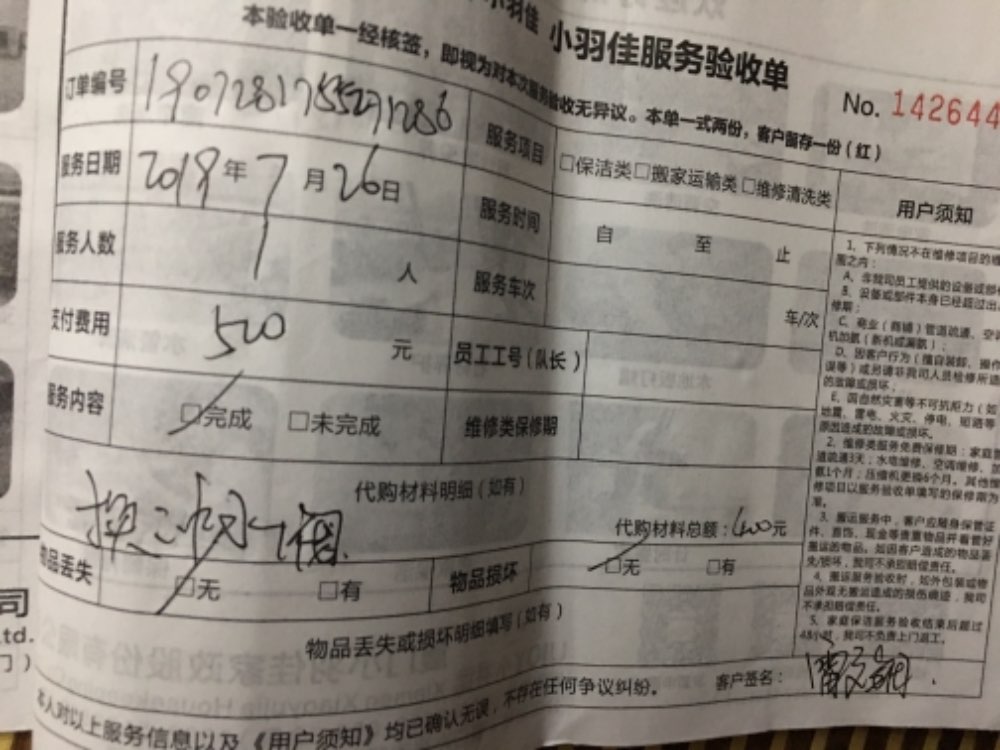 小羽佳 小羽佳服务验收单
本验收单一经核签，即视为对本次服务验收无异议。本单一式两份，客户留存一份（红）
No. 142644
订单编号
服务项目 □保洁类□搬家运输类□维修清洗类
用户须知
服务日期 2019年7月26日
服务时间 自 至 止
服务人数 1 人
服务车次 车/次
支付费用 500 元
员工工号（队长）
服务内容 □完成 □未完成
维修类保修期
代购材料明细（如有）
换
代购材料总额：400元
物品丢失 □无 □有
物品损坏 □无 □有
物品丢失或损坏明细填写（如有）
本人对以上服务信息以及《用户须知》均已确认无误，不存在任何争议纠纷。
客户签名：
1、下列情况不在维修项目的维
围之内：
A、非我司员工提供的设备或部
B、设备或部件本身已经超过出
修期；
C、商业（商铺）管道疏通、空调
机加氨（新机或漏氨）；
D、因客户行为（擅自装卸、操作
误等）或另请非我司人员检修所造
的故障或损坏；
E、因自然灾害等不可抗拒力（如
地震、雷电、火灾、停电、短路等
原因造成的故障或损坏。
2、维修类服务免费保修期：家庭管
道疏通3天；水电维修、空调维修、
氨1个月；压缩机更换6个月。其他维
修项目以服务验收单填写的保修期为
准。
3、搬运服务中，客户应随身保管证
件、首饰、现金等贵重物品并看管好
搬运的物品。如因客户造成的物品丢
失/损坏，我司不承担赔偿责任。
4、搬运服务验收时，如外包装或物
品外观无搬运造成的损伤痕迹，我司
不承担赔偿责任。
5、家庭保洁服务验收结束后超过
48小时，我司不负责上门返工。
司
td.
门）